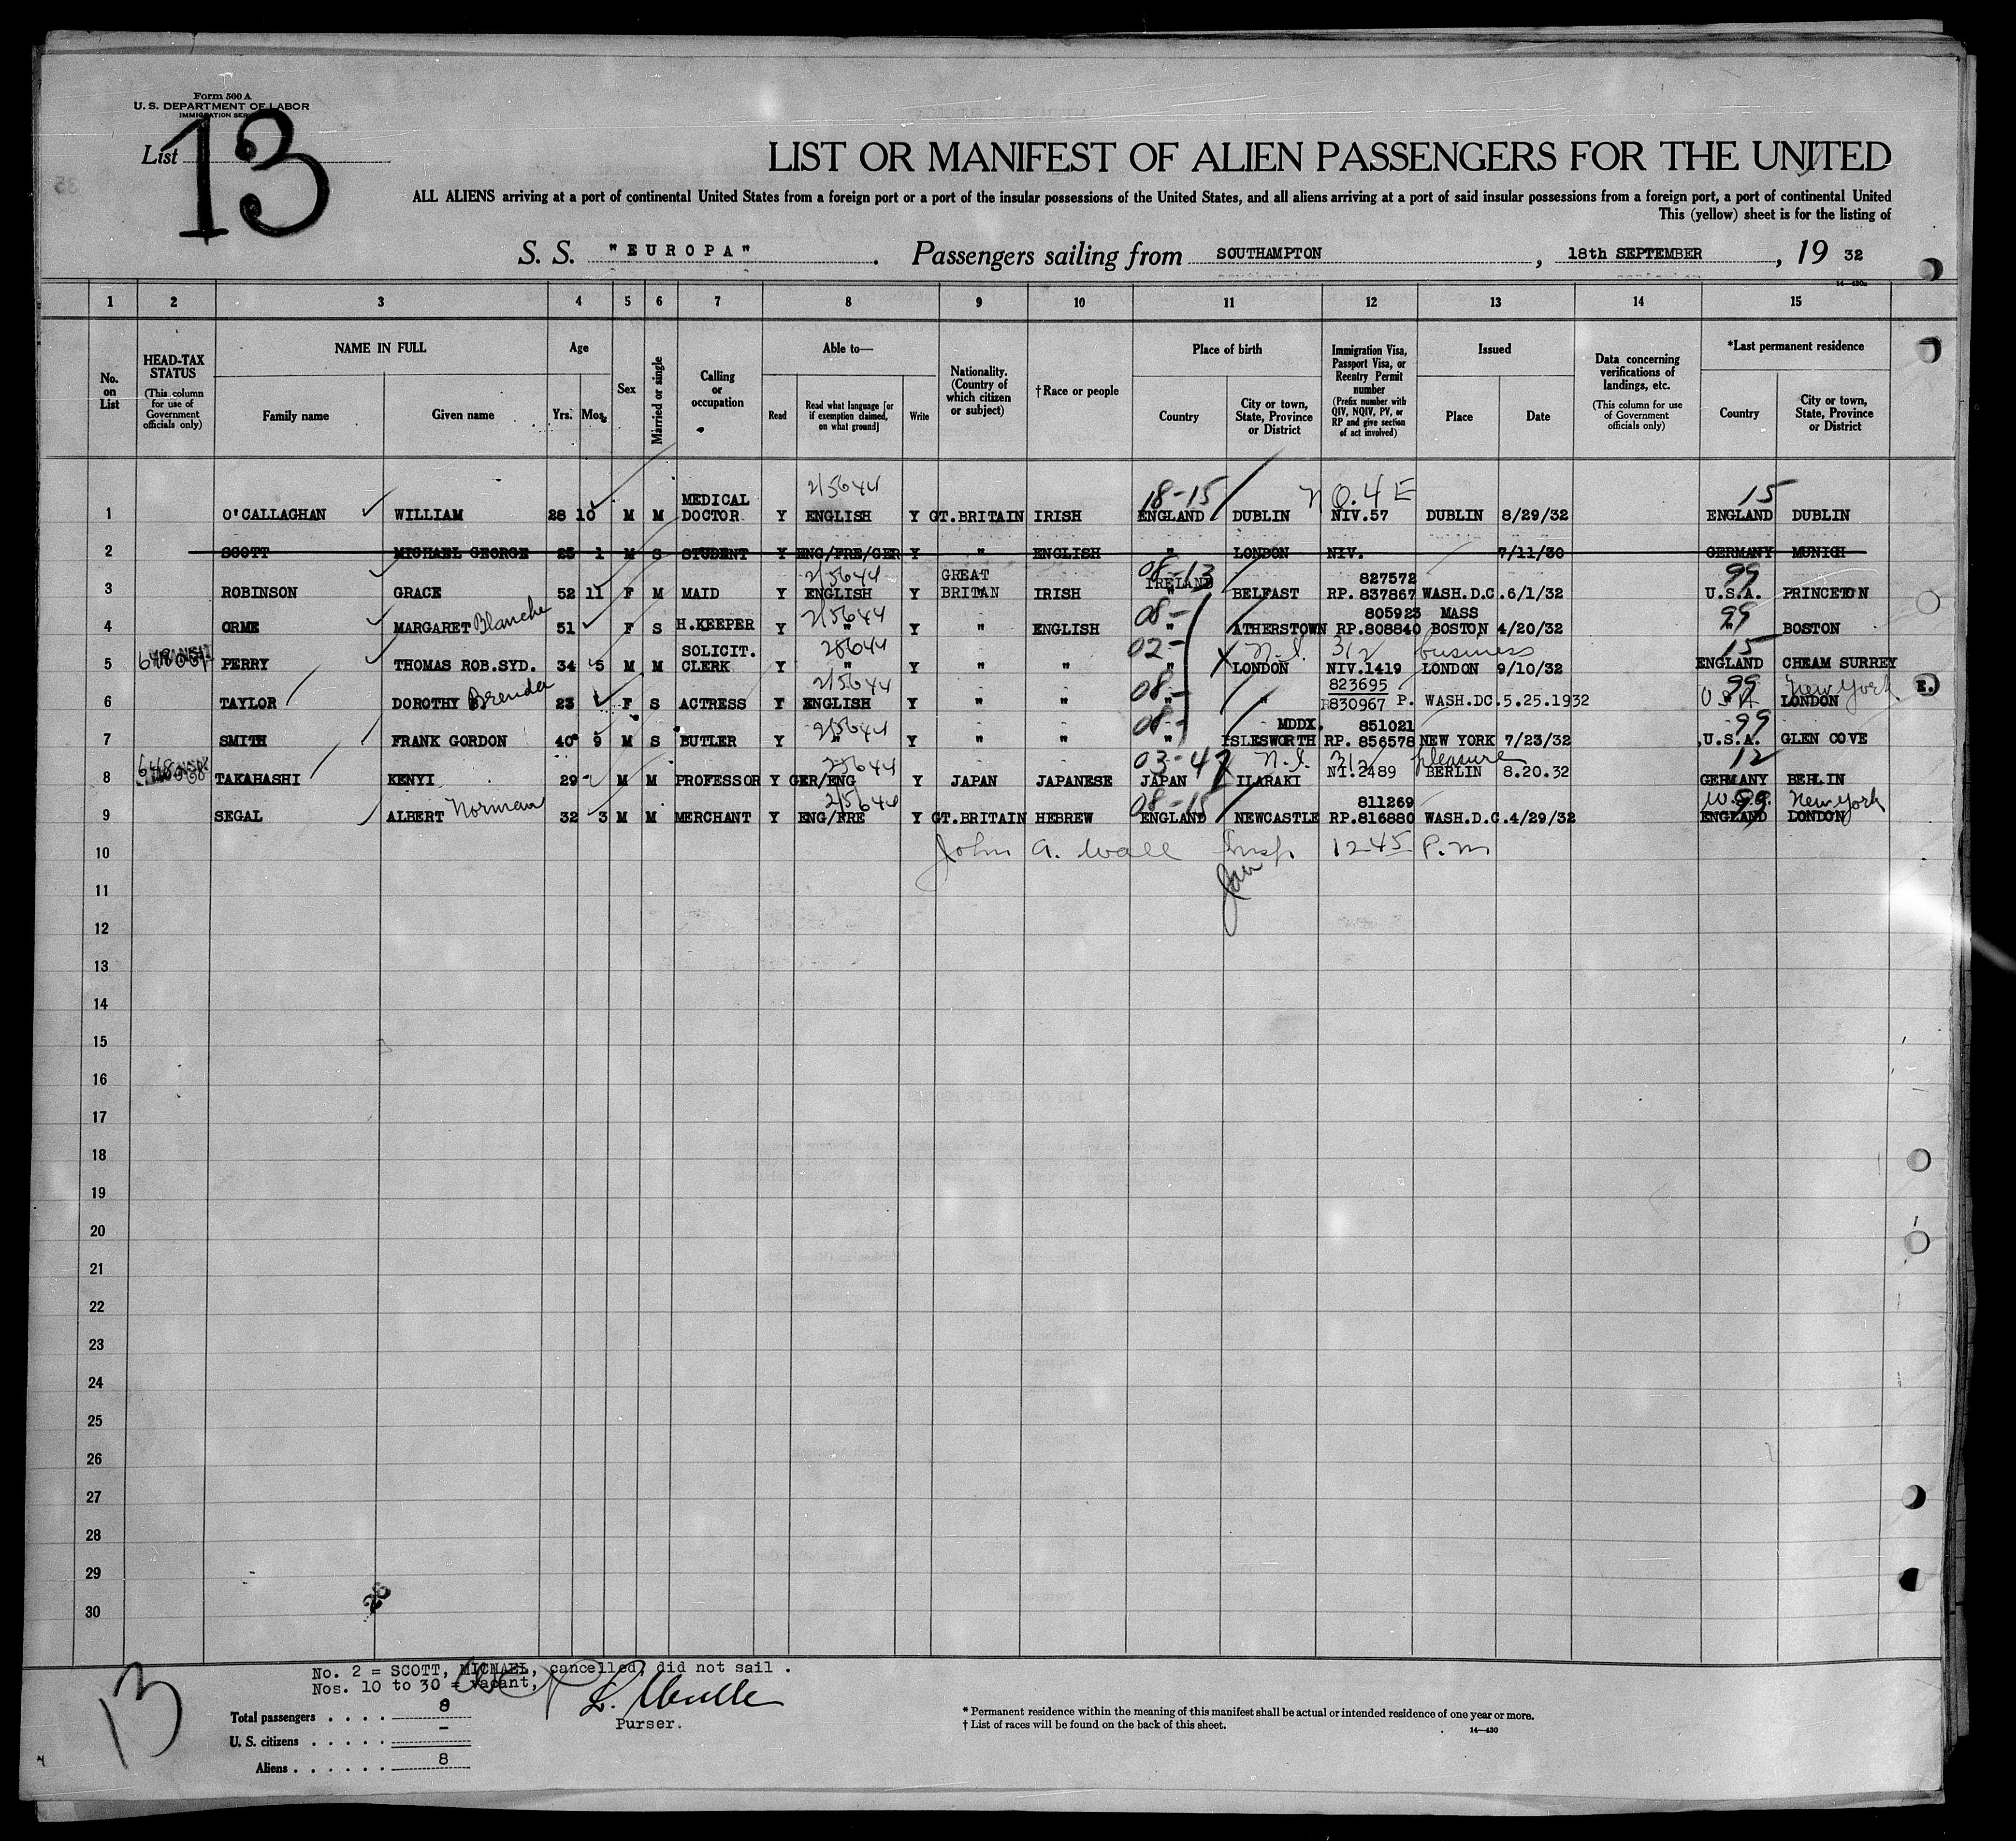 Form 500 A
U. S. DEPARTMENT OF LABOR
IMMIGRATION SER
List 13
LIST OR MANIFEST OF ALIEN PASSENGERS FOR THE UNITED
ALL ALIENS arriving at a port of continental United States from a foreign port or a port of the insular possessions of the United States, and all aliens arriving at a port of said insular possessions from a foreign port, a port of continental United
This (yellow) sheet is for the listing of
S. S. "EUROPA". Passengers sailing from SOUTHAMPTON, 18th SEPTEMBER, 19 32
1 2 3 4 5 6 7 8 9 10 11 12 13 14 15
No. on List
HEAD-TAX STATUS (This column for use of Government officials only)
NAME IN FULL Family name Given name
Age Yrs. Mos.
Sex
Married or single
Calling or occupation
Able to— Read Read what language [or if exemption claimed, on what ground] Write
Nationality. (Country of which citizen or subject)
†Race or people
Place of birth Country City or town, State, Province or District
Immigration Visa, Passport Visa, or Reentry Permit number (Prefix number with QIV, NQIV, PV, or RP and give section of act involved)
Issued Place Date
Data concerning verifications of landings, etc. (This column for use of Government officials only)
*Last permanent residence Country City or town, State, Province or District
215644 18-15 NO.4E 15
1 O'CALLAGHAN WILLIAM 28 10 M M MEDICAL DOCTOR Y ENGLISH Y GT.BRITAIN IRISH ENGLAND DUBLIN NIV.57 DUBLIN 8/29/32 ENGLAND DUBLIN
2 SCOTT MICHAEL GEORGE 25 1 M S STUDENT Y ENG/FRE/GER Y " ENGLISH " LONDON NIV. 7/11/30 GERMANY MUNICH
215644 08-13 827572 99
3 ROBINSON GRACE 52 11 F M MAID Y ENGLISH Y GREAT BRITAN IRISH IRELAND BELFAST RP. 837867 WASH.D.C.6/1/32 U.S.A. PRINCETON
215644 08- 805923 MASS 99
4 ORME MARGARET Blanche 51 F S H.KEEPER Y " Y " ENGLISH " ATHERSTOWN RP.808840 BOSTON 4/20/32 " BOSTON
28644 02- N.I. 3/2 business 15
5 PERRY THOMAS ROB.SYD. 34 5 M M SOLICIT. CLERK Y " Y " " " LONDON NIV.1419 LONDON 9/10/32 ENGLAND CHEAM SURREY
215644 08- 823695 99 New York
6 TAYLOR DOROTHY Brenda 23 F S ACTRESS Y ENGLISH Y " " " " 830967 P. WASH.DC.5.25.1932 USA LONDON E.
215644 08- MDDX. 851021 99
7 SMITH FRANK GORDON 40 9 M S BUTLER Y " Y " " " ISLESWORTH RP. 856578 NEW YORK 7/23/32 U.S.A. GLEN COVE
25644 03-47 N.I. 3/2 pleasure 12
8 TAKAHASHI KENYI 29 M M PROFESSOR Y GER/ENG Y JAPAN JAPANESE JAPAN ILARAKI NI.2489 BERLIN 8.20.32 GERMANY BERLIN
215644 08-15 811269 99 New York
9 SEGAL ALBERT Norman 32 3 M M MERCHANT Y ENG/FRE Y GT.BRITAIN HEBREW ENGLAND NEWCASTLE RP.816880 WASH.D.C.4/29/32 ENGLAND LONDON
10 John A. Wall Insp 1245 P.m
11
12
13
14
15
16
17
18
19
20
21
22
23
24
25
26
27
28
29
30
No. 2 = SCOTT, MICHAEL, cancelled, did not sail .
Nos. 10 to 30 = vacant,
13
Total passengers . . . . 8
U. S. citizens . . . . . –
Aliens . . . . . . 8
Purser.
* Permanent residence within the meaning of this manifest shall be actual or intended residence of one year or more.
† List of races will be found on the back of this sheet.
14—430